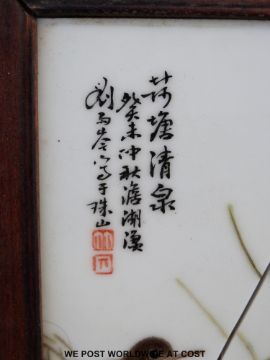 荷塘清泉
癸未仲秋澹湖漫
劉雨岑寫于珠山
WE POST WORLDWIDE AT COST